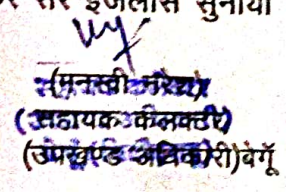 सर इजलास सुनाया
(मनस्वी नरेश)
(सहायक कलक्टर)
(उपखण्ड अधिकारी)बेगूँ